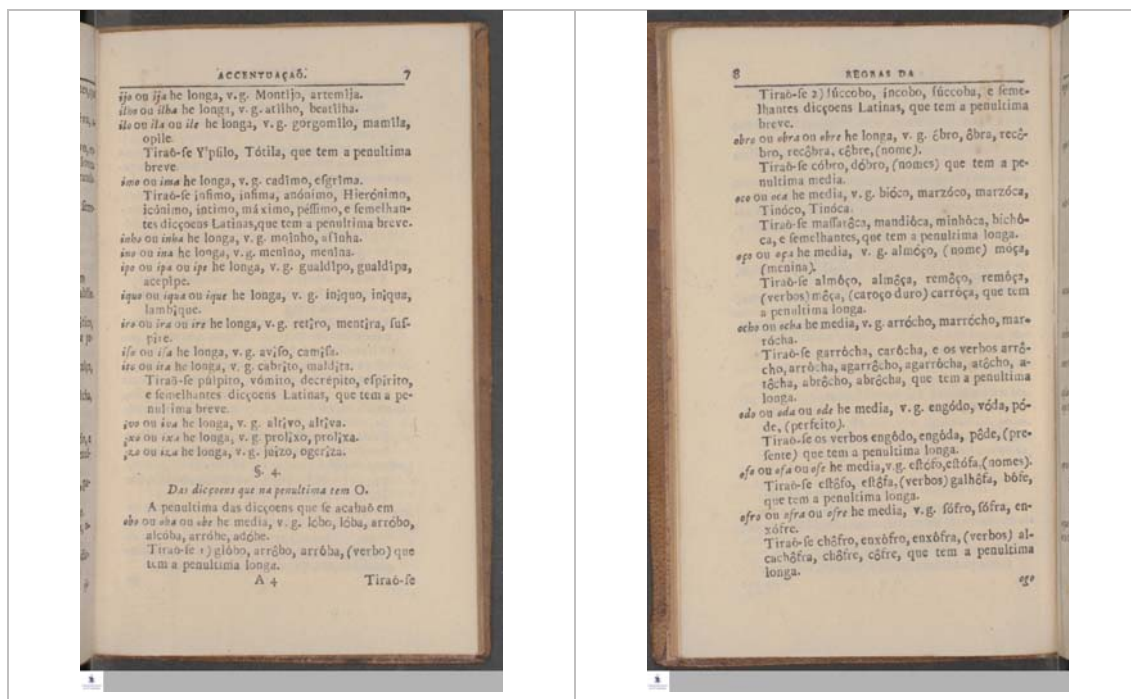 ACCENTUAÇAÕ. 7
ijo ou ija he longa, v. g. Montîjo, artemîja.
ilho ou ilha he longa, v. g. atîlho, beatîlha.
ilo ou ila ou ile he longa, v. g. gorgomîlo, mamîla,
opîle.
Tiraõ-se Y'psilo, Tótila, que tem a penultima
breve.
imo ou ima he longa, v. g. cadîmo, esgrîma.
Tiraõ-se ínfimo, ínfima, anónimo, Hierónimo,
icónimo, íntimo, máximo, péssimo, e semelhan-
tes dicçoens Latinas, que tem a penultima breve.
inho ou inha he longa, v. g. moînho, asînha.
ino ou ina he longa, v. g. menîno, menîna.
ipo ou ipa ou ipe he longa, v. g. gualdîpo, gualdîpa,
acepîpe.
iquo ou iqua ou ique he longa, v. g. inîquo, inîqua,
lambîque.
iro ou ira ou ire he longa, v. g. retîro, mentîra, sus-
pîre.
iso ou isa he longa, v. g. avîso, camîsa.
ito ou ita he longa, v. g. cabrîto, maldîta.
Tiraõ-se púlpito, vómito, decrépito, espírito,
e semelhantes dicçoens Latinas, que tem a pe-
nultima breve.
ivo ou iva he longa, v. g. altîvo, altîva.
ixo ou ixa he longa, v. g. prolîxo, prolîxa.
izo ou iza he longa, v. g. juîzo, ogerîza.
§. 4.
Das dicçoens que na penultima tem O.
A penultima das dicçoens que se acabaõ em
obo ou oba ou obe he media, v. g. lóbo, lóba, arróbo,
alcóba, arróbe, adóbe.
Tiraõ-se 1) glôbo, arrôbo, arrôba, (verbo) que
tem a penultima longa.
A 4 Tiraõ-se
8 REGRAS DA
Tiraõ-se 2) súccobo, íncobo, súccoba, e seme-
lhantes dicçoens Latinas, que tem a penultima
breve.
obro ou obra ou obre he longa, v. g. ôbro, ôbra, recô-
bro, recôbra, côbre, (nome).
Tiraõ-se cóbro, dóbro, (nomes) que tem a pe-
nultima media.
oco ou oca he media, v. g. bióco, marzóco, marzóca,
Tinóco, Tinóca.
Tiraõ-se massarôca, mandiôca, minhôca, bichô-
ca, e semelhantes, que tem a penultima longa.
oço ou oça he media, v. g. almóço, (nome) móça,
(menina).
Tiraõ-se almôço, almôça, remôço, remôça,
(verbos) môça, (caroço duro) carrôça, que tem
a penultima longa.
ocho ou ocha he media, v. g. arrócho, marrócho, mar-
rócha.
Tiraõ-se garrôcha, carôcha, e os verbos arrô-
cho, arrôcha, agarrôcho, agarrôcha, atôcho, a-
tôcha, abrôcho, abrôcha, que tem a penultima
longa.
odo ou oda ou ode he media, v. g. engódo, vóda, pó-
de, (perfeito).
Tiraõ-se os verbos engôdo, engôda, pôde, (pre-
sente) que tem a penultima longa.
ofo ou ofa ou ofe he media, v. g. estófo, estófa, (nomes).
Tiraõ-se estôfo, estôfa, (verbos) galhôfa, bôfe,
que tem a penultima longa.
ofro ou ofra ou ofre he media, v. g. sófro, sófra, en-
xófre.
Tiraõ-se chôfro, enxôfro, enxôfra, (verbos) al-
cachôfra, chôfre, côfre, que tem a penultima
longa.
ogo